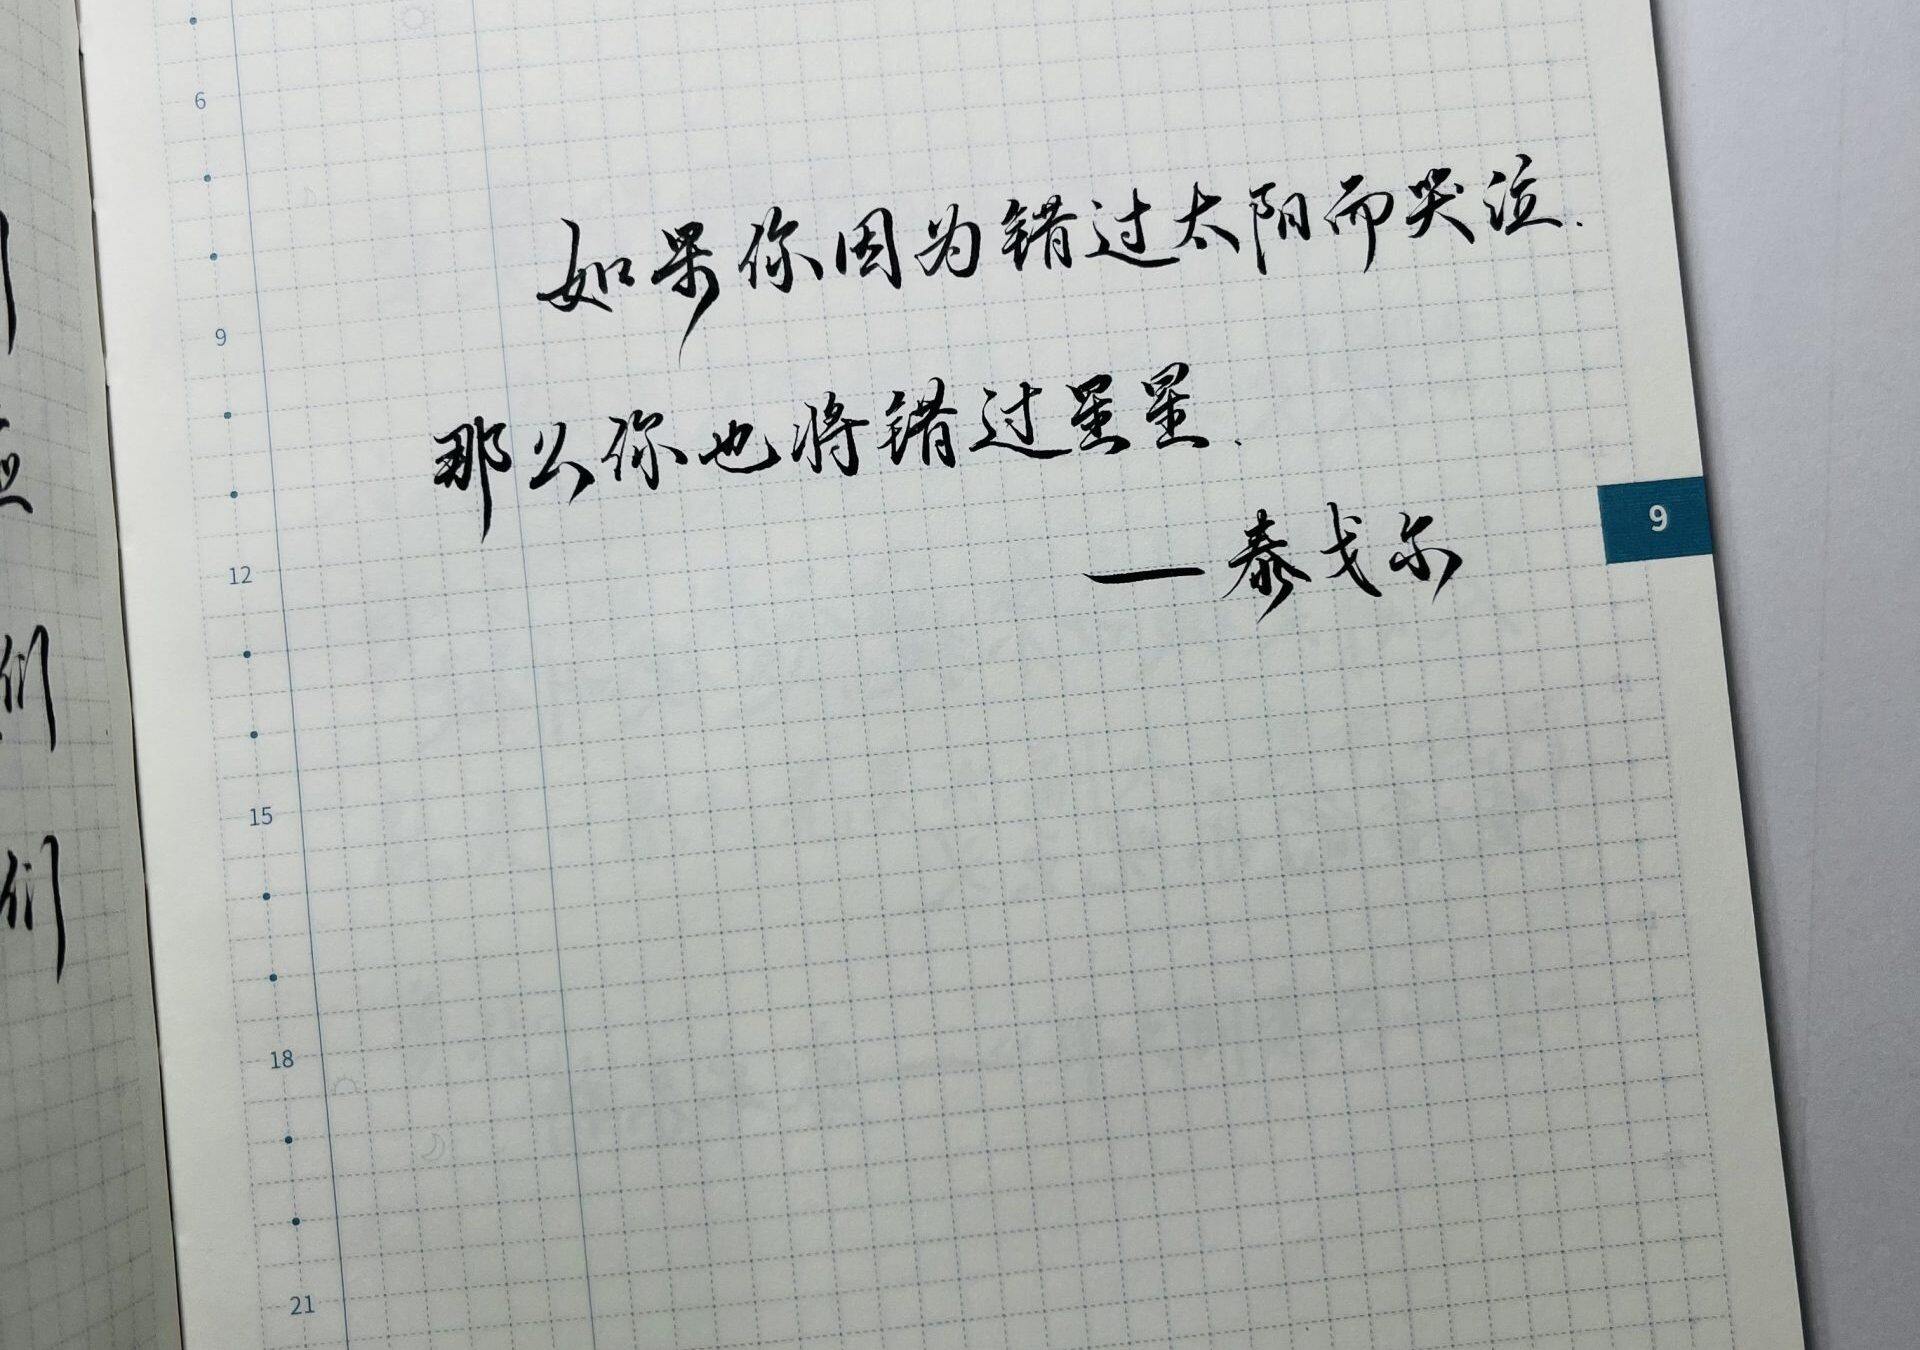 6
如果你因为错过太阳而哭泣.
9
那么你也将错过星星.
9
——泰戈尔
12
15
18
21
们
们